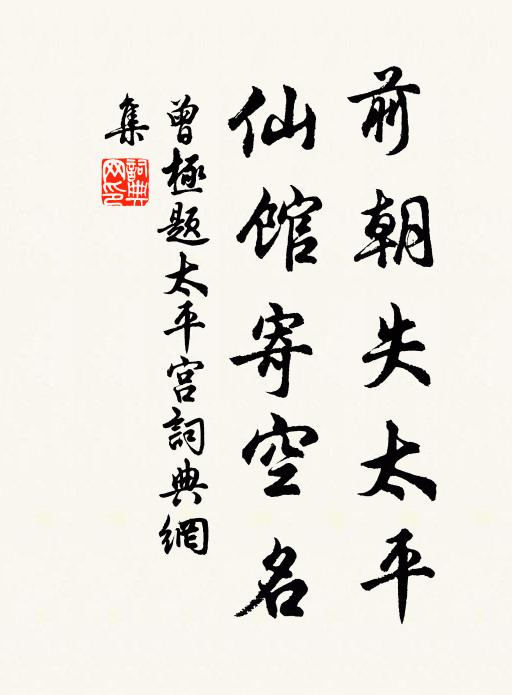 前朝失太平
仙馆寄空名
曾极题太平宫詞典網
集
詞典网印